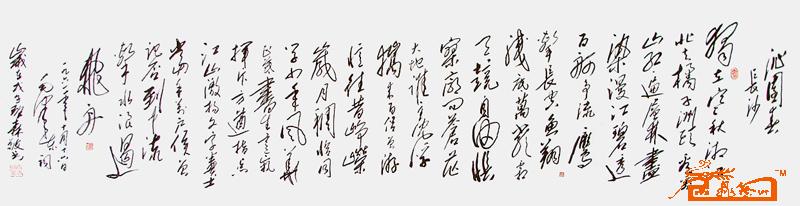 沁园春
长沙
独立寒秋湘江
北去橘子洲头看万
山红遍层林尽
染漫江碧透
百舸争流鹰
击长空鱼翔
浅底万类霜
天竞自由怅
寥廓问苍茫
大地谁主沉浮
携来百侣曾游
忆往昔峥嵘
岁月稠恰同
学少年风华
正茂书生意气
挥斥方遒指点
江山激扬文字粪土
当年万户侯曾
记否到中流
击水浪遏
飞舟
毛泽东词